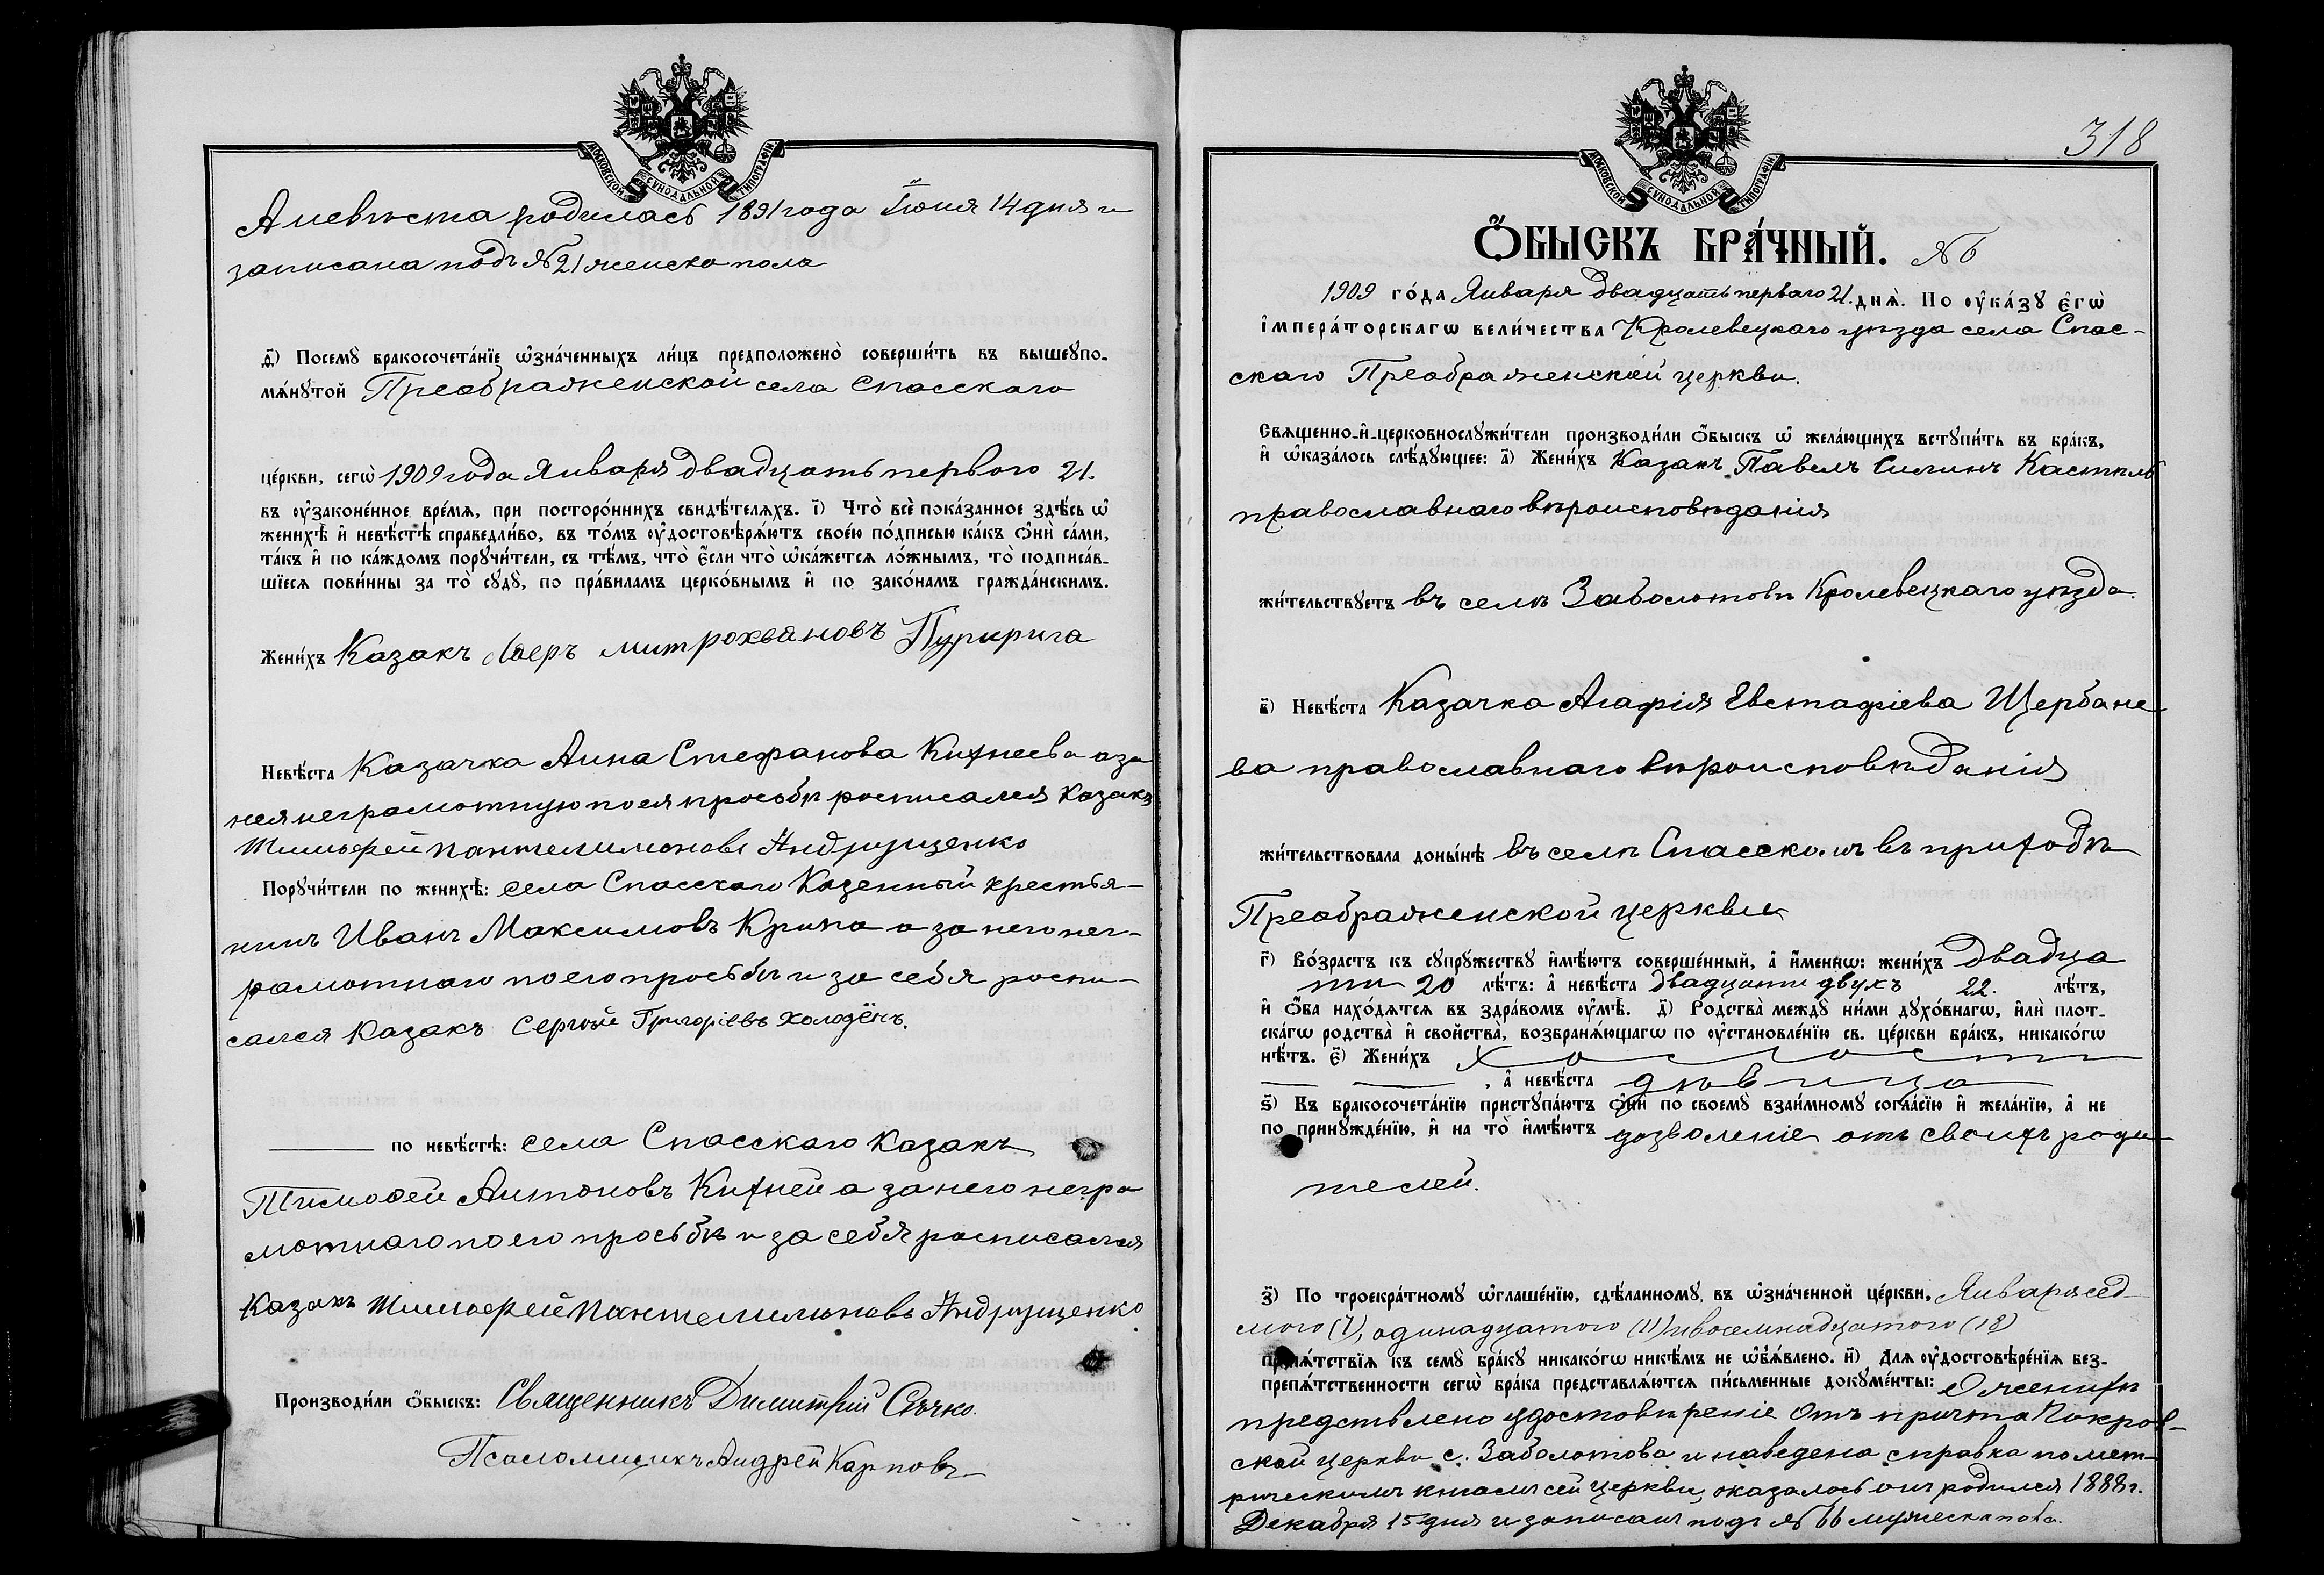 МОСКОВСКОЙ СѴНОДАЛЬНОЙ ТИПОГРАФІИ
А невѣста родилась 1891 года Іюня 14 дня и
записана подъ № 21 женска пола
д҃) Посемꙋ̀ бракосочета́нїе ѡ҆зна́ченныхъ ли́цъ предположено̀ соверши́ть въ вышеꙋпо-
мѧ́нꙋтой Преображенской села Спасскаго
це́ркви, сегѡ̀ 1909 года Января двадцать первого 21.
въ ᲂу҆законе́нное вре́мѧ, при посторо́ннихъ свидѣ́телѧхъ. і҃) Что̀ всѐ пока́занное здѣ́сь ѡ҆
женихѣ̀ и҆ невѣ́стѣ справедли́во, въ то́мъ ᲂу҆достовѣрѧ́ютъ свое́ю по́дписью ка́къ ѻ҆нѝ са́ми,
та́къ и҆ по ка́ждомъ порꙋчи́тели, съ тѣ́мъ, что̀ є҆́сли что̀ ѡ҆ка́жется ло́жнымъ, то̀ подписа́в-
шїеся пови́нны за то̀ сꙋдꙋ̀, по пра́виламъ церко́внымъ и҆ по зако́намъ гражда́нскимъ.
Жени́хъ Казакъ митрохвановъ
Невѣ́ста Казачка Анна Стефанова Кихнеева а за
нея неграмотную по ея просьбѣ росписался Казакъ
Тимофей Пантелимоновъ Андрущенко
Порꙋчи́тели по женихѣ̀: села Спасскаго Казенный крестья-
нинъ Иванъ Максимовъ а за него нег-
рамотнаго по его просьбѣ и за себя роспи-
сался Казакъ Сергѣй Григоріевъ Холодёнъ.
по невѣ́стѣ: села Спасскаго Казакъ
Тимофей Антоновъ Кихней а за него негра
мотнаго по его просьбѣ и за себя росписался
Казакъ Тимофей Пантелимоновъ Андрущенко
Производи́ли ѻ҆́быскъ: Священникъ Димитрій Сѣчко.
Псаломщикъ Андрей Карповъ
318
МОСКОВСКОЙ СѴНОДАЛЬНОЙ ТИПОГРАФІИ
Ѻ҆́БЫСКЪ БРА́ЧНЫЙ. № 6
1909 го́да Января двадцать первого 21. днѧ̀. По ᲂу҆ка́зꙋ є҆гѡ̀
і҆мпера́торскагѡ вели́чества Кролевецкаго уѣзда села Спас-
скаго Преображенской церкви.
Свѧщенно-и҆-церковнослꙋжи́тели производи́ли ѻ҆́быскъ ѡ҆ жела́ющихъ встꙋпи́ть въ бра́къ,
и҆ ѡ҆каза́лось слѣ́дꙋющее: а҃) Жени́хъ Казакъ Павелъ Силинъ
православнаго вѣроисповѣданія
жи́тельствꙋетъ въ селѣ Заболотовѣ Кролевецкаго уѣзда.
в҃) Невѣ́ста Казачка Агафія Евстафіева Щербане
ва православнаго вѣроисповѣданія
жи́тельствовала доны́нѣ въ селѣ Спасскомъ въ приходѣ
Преображенской церкви
г҃) Во́зрастъ къ сꙋпрꙋ́жествꙋ и҆мѣ́ютъ соверше́нный, а҆ и҆́меннѡ: жени́хъ двадца
ти 20 лѣ́тъ: а҆ невѣ́ста двадцати двухъ 22. лѣ́тъ,
и҆ ѻ҆́ба нахо́дѧтся въ здра́вомъ ᲂу҆мѣ̀. д҃) Родства̀ междꙋ̀ ни́ми дꙋхо́внагѡ, и҆лѝ плот-
ска́гѡ родства̀ и҆ свойства̀, возбранѧ́ющагѡ по ᲂу҆становле́нїю св. це́ркви бра́къ, никако́гѡ
нѣ́тъ. є҃) Жени́хъ холостъ
, а҆ невѣ́ста дѣвица
ѕ҃) Къ бракосочета́нїю пристꙋпа́ютъ ѻ҆нѝ по своемꙋ̀ взаи́мномꙋ согла́сїю и҆ жела́нїю, а҆ не
по принꙋжде́нїю, и҆ на то̀ и҆мѣ́ютъ дозволеніе отъ своихъ роди-
телей.
з҃) По троекра́тномꙋ ѡ҆глаше́нїю, сдѣ́ланномꙋ въ ѡ҆зна́ченной це́ркви, Января сед-
мого (7), одинадцатого (11) и восемнадцатого (18)
препѧ́тствїѧ къ семꙋ̀ бра́кꙋ никако́гѡ никѣ́мъ не ѡ҆б̾ѧ́влено. и҃) Длѧ ᲂу҆достовѣре́нїѧ без-
препѧ́тственности сегѡ̀ бра́ка представлѧ́ются пи́сьменные докꙋме́нты: О женихѣ
предствлено удостовѣреніе отъ причта Покров-
ской церкви с. Заболотова и наведена справка по мет-
рическимъ книгамъ сей церкви, оказалось онъ родился 1888 г.
Декабря 15 дня и записанъ подъ № 66 мужеска пола.